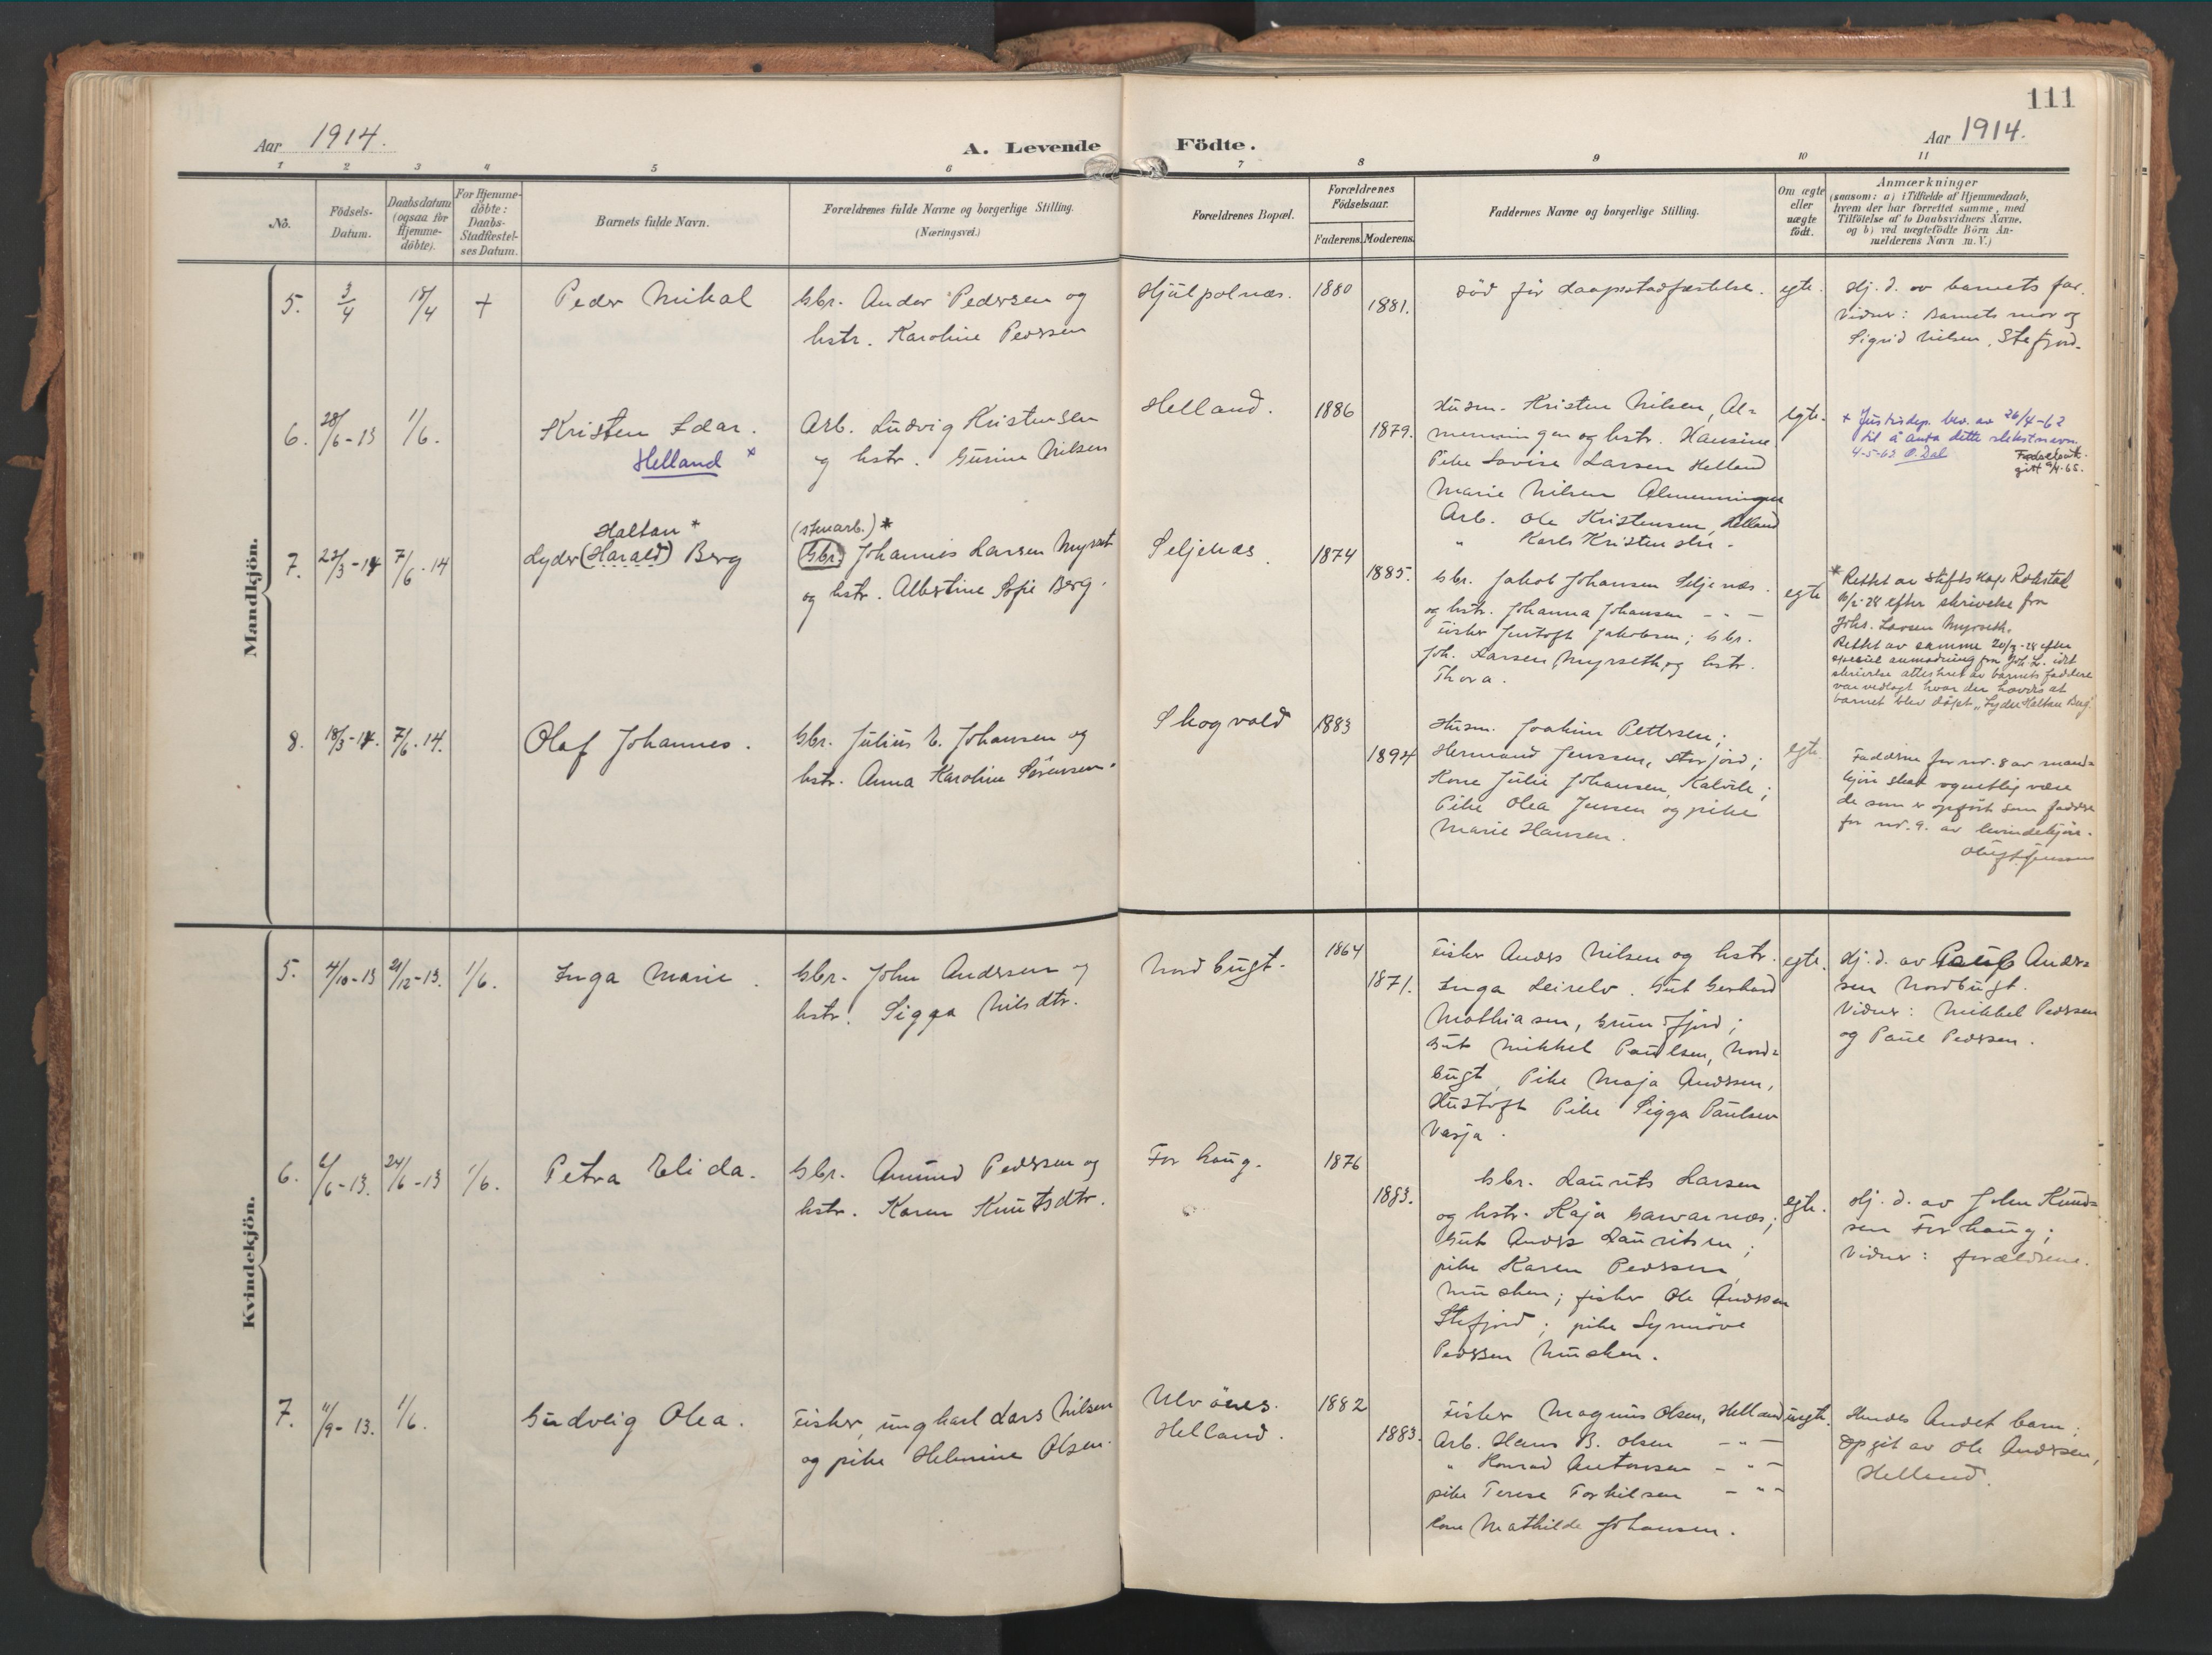 111
Aar 1914.
A. Levende Födte.
Aar 1914.
1 2 3 4 5 6 7 8 9 10 11
No.
Födsels-
Datum.
Daabsdatum
(ogsaa for
Hjemme-
döbte).
For Hjemme-
döbte:
Daabs-
Stadfæstel-
ses Datum.
Barnets fulde Navn.
Forældrenes fulde Navne og borgerlige Stilling.
(Næringsvei.)
Forældrenes Bopæl.
Forældrenes
Födselsaar.
Faderens. Moderens.
Faddernes Navne og borgerlige Stilling.
Om ægte
eller
uægte
födt.
Anmærkninger
(saasom: a) i Tilfælde af Hjemmedaab,
hvem der har forrettet samme, med
Tilföielse af to Daabsvidners Navne.
og b) ved uægtefödte Börn An-
melderens Navn m.V.)
Mandkjön.
5. 3/4 18/4 +
Peder Mikal
Gbr. Ander Pedersen og
hstr. Karoline Pedersen
Hjulpolnæs.
1880
1881.
död før daapsstadfæstelse.
egte.
Hj. d. av barnets far.
Vidner: Barnets mor og
Sigrid Nilsen, Stefjord.
6. 28/6-13 1/6.
Kristen Edar.
Helland x
Arb. Ludvig Kristensen
og hstr. Gurine Nilsen
Helland.
1886
1879.
Husm. Kristen Nilsen, Al=
menningen og hstr. Hansine
Pike Lovise Larsen Helland
Marie Nilsen Almenningen
Arb. Ole Kristensen, Helland
" Karl Kristensen -
egte.
+ Justisdep. bev. av 26/4-62
til å anta dette slektsnavn.
4-5-62 O. Dal
7. 22/3-14 7/6-14
Haltan *
Lyder (Harald) Berg
(stenarb.) *
(Gbr.) Johannes Larsen Myrset
og hstr. Albertine Sofie Berg.
Seljenæs.
1874
1885.
Gbr. Jakob Johansen Seljenæs.
og hstr. Johanna Johansen - " -
Fisker Jentoft Jakobsen; Gbr.
Joh. Larsen Myrseth og hstr.
Thora.
egte
* Rettet av stiftskap. Rokstad
efter skrivelse fra
Johs. Larsen Myrseth.
Rettet av samme 20/3-28 efter
speciel anmodning fra Joh. L. idet
skrivelse attestert av barnets faddere
var vedlagt hvor der hævdes at
barnet blev døpt "Lyder Haltan Berg".
8. 18/3-14. 7/6-14.
Olaf Johannes.
Gbr. Julius E. Johansen og
hstr. Anna Karoline Sørensen.
Skogvold
1883
1894
Husm. Joakim Pettersen;
Hermand Jenssen, Storjord;
Kone Julie Johansen, Kalvik;
Pike Olea Jensen og pike
Marie Hansen.
egte.
Fadderne for nr. 8 av mand=
kjøn skal egentlig være
de som er opført som faddere
for nr. 9. av kvindekjøn.
Kvindekjön.
5. 4/10-13 21/12-13. 1/6.
Inga Marie.
Gbr. John Andersen og
hstr. Sigga Nilsdtr.
Nordbugt.
1864
1871.
Fisker Anders Nilsen og hstr.
Inga Leirelv. Gut Gerhard
Mathiasen, Grunfjord;
Gut Mikkel Paulsen, Nord=
bugt, Pike Maja Andersen,
Hustoft Pike Sigga Paulsen
Vasja.
egte.
Hj. d. av Paul Ander=
sen Nordbugt.
Vidner: Mikkel Pedersen
og Paul Pedersen.
6. 6/6-13. 24/6-13 1/6.
Petra Elida.
Gbr. Amund Pedersen og
hstr. Karen Knutsdtr.
Forhaug.
1876
1883.
Gbr. Laurits Larsen
og hstr. Kaja Gavarnæs;
Gut Anders Lauritsen;
pike Karen Pedersen,
Musken; fisker Ole Andersen
Stefjord; pike Synnøve
Pedersen Musken.
egte.
Hj. d. av John Knud=
sen Forhaug;
Vidner: forældrene.
7. 11/9-13. 1/6.
Gudveig Olea.
Fisker, ungkarl Lars Nilsen
og pike Helmine Olsen.
Ulvönes.
Helland.
1882
1883.
Fisker Magnus Olsen, Helland
Arb. Hans B. Olsen - " -
" Konrad Antonsen - " -
pike Terese Torkilsen - " -
Kone Mathilde Johansen.
uegte.
Hendes Andet barn;
Opgit av Ole Andersen,
Helland.